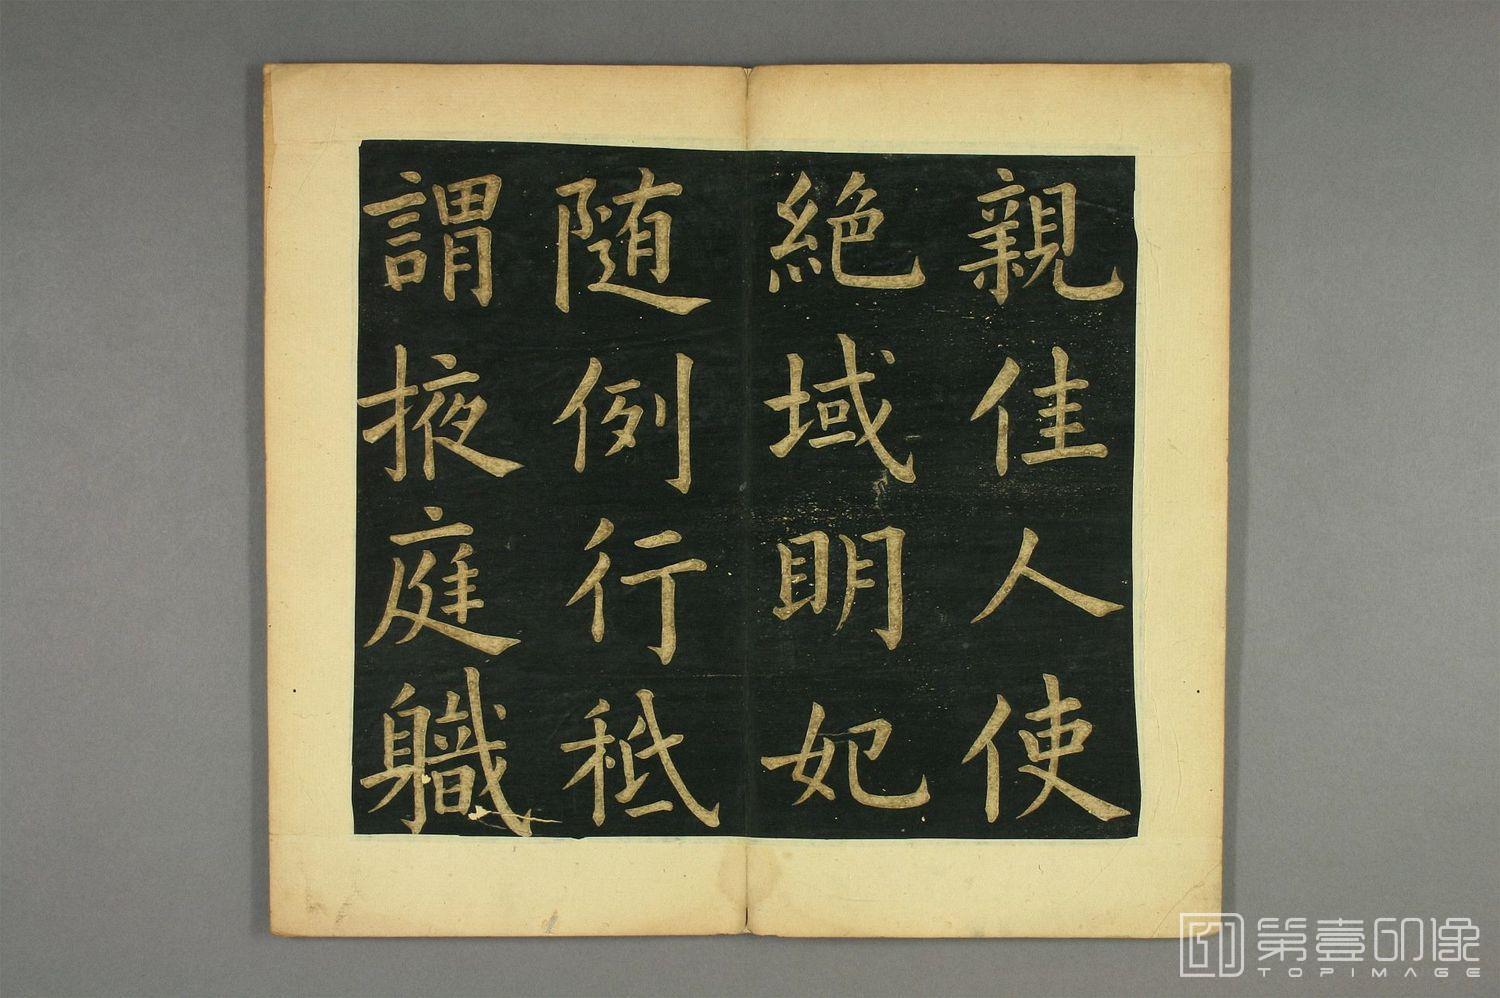 親佳人使
絶域明妃
随例行秪
謂掖庭軄
第壹印像
TOPIMAGE